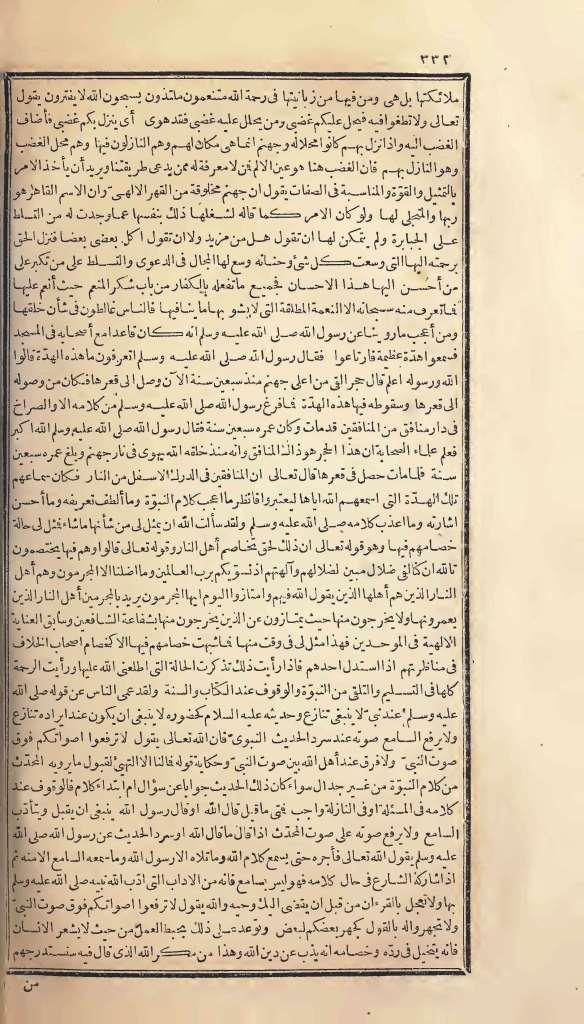 ٣٣٢
ملائكتها بل هى ومن فيها من زبانيتها فى رحمة الله متنعمون ملتذون يسبحون الله لا يفترون يقول
تعالى ولا تطغوا فيه فيحل عليكم غضبى ومن يحلل عليه غضبى فقد هوى أى ينزل بكم غضبى فأضاف
الغضب اليه واذا نزل بهم كانوا محلا له وجهنم انما هى مكان لهم وهم النازلون فيها وهم محل الغضب
وهو النازل بهم فان الغضب هنا هو عين الالم فمن لا معرفة له ممن يدعى طريقتنا ويريد أن يأخذ الامر
بالتمثيل والقوّة والمناسبة فى الصفات يقول ان جهنم مخلوقة من القهر الالهى وان الاسم القاهر هو
ربها والمتجلى لها ولو كان الامر كما قاله لشغلها ذلك بنفسها عما وجدت له من التسلط
على الجبابرة ولم يتمكن لها ان تقول هل من مزيد ولا ان تقول اكل بعضى بعضا فنزل الحق
برحمته اليها التى وسعت كل شئ وحنانه وسع لها المجال فى الدعوى والتسلط على من تكبر على
من أحسن اليها هذا الاحسان فجميع ما تفعله بالكفار من باب شكر المنعم حيث أنعم عليها
فما تعرف منه سبحانه الا النعمة المطلقة التى لا يشوبها ما ينافيها فالناس غالطون فى شأن خلقها
ومن أعجب ما رويناه عن رسول الله صلى الله عليه وسلم انه كان قاعدا مع أصحابه فى المسجد
فسمعوا هدّة عظيمة فارتاعوا فقال رسول الله صلى الله عليه وسلم اتعرفون ما هذه الهدّة قالوا
الله ورسوله اعلم قال حجر ألقى من اعلى جهنم منذ سبعين سنة الآن وصل الى قعرها فكان من وصوله
الى قعرها وسقوطه فيها هذه الهدّة فما فرغ رسول الله صلى الله عليه وسلم من كلامه الا والصراخ
فى دار منافق من المنافقين قد مات وكان عمره سبعين سنة فقال رسول الله صلى الله عليه وسلم الله اكبر
فعلم علماء الصحابة ان هذا الحجر هو ذاك المنافق وانه منذ خلقه الله يهوى فى نار جهنم وبلغ عمره سبعين
سنة فلما مات حصل فى قعرها قال تعالى ان المنافقين فى الدرك الاسفل من النار فكان سماعهم
تلك الهدّة التى اسمعهم الله اياها ليعتبروا فانظر ما اعجب كلام النبوّة وما ألطف تعريفه وما أحسن
اشارته وما اعذب كلامه صلى الله عليه وسلم ولقد سألت الله ان يمثل لى من شأنها ما شاء فمثل لى حالة
خصامهم فيها وهو قوله تعالى ان ذلك لحق تخاصم أهل النار وقوله تعالى قالوا وهم فيها يختصمون
تالله ان كنا لفى ضلال مبين لضلالهم وآلهتهم اذ نسوّيكم برب العالمين وما اضلنا الا المجرمون وهم أهل
النار الذين هم أهلها الذين يقول الله فيهم وامتازوا اليوم ايها المجرمون يريد بالمجرمين أهل النار الذين
يعمرونها ولا يخرجون منها حيث يمتازون عن الذين يخرجون منها بشفاعة الشافعين وسابق العناية
الالهية فى الموحدين فهذا مثل لى فى وقت منها فما شبهت خصامهم فيها الا كخصام اصحاب الخلاف
فى مناظرتهم اذا استدل احدهم فاذا رأيت ذلك تذكرت الحالة التى اطلعنى الله عليها ورأيت الرحمة
كلها فى التسليم والتلقى من النبوّة والوقوف عند الكتاب والسنة ولقد عمى الناس عن قوله صلى الله
عليه وسلم عند نبىّ لا ينبغى تنازع وحديثه عليه السلام كحضوره لا ينبغى ان يكون عند ايراده تنازع
ولا يرفع السامع صوته عند سرد الحديث النبوىّ فان الله تعالى يقول لا ترفعوا اصواتكم فوق
صوت النبىّ ولا فرق عند أهل الله بين صوت النبىّ وحكاية قوله فما لنا الا التهيئ لقبول ما يرويه المحدّث
من كلام النبوّة من غير جدال سواء كان ذلك الحديث جوابا عن سؤال ام ابتداء كلام فالوقوف عند
كلامه فى المسئلة او فى النازلة واجب فمتى ما قيل قال الله او قال رسول الله ينبغى ان يقبل ويتأدّب
السامع ولا يرفع صوته على صوت المحدّث اذا قال ما قال الله او سرد الحديث عن رسول الله صلى الله
عليه وسلم يقول الله تعالى فأجره حتى يسمع كلام الله وما تلاه الا رسول الله وما سمعه السامع الا منه ثم
اذا شاركه الشارع فى حال كلامه فهو ليس بسامع فانه من الاداب التى ادّب الله نبيه صلى الله عليه وسلم
بها ولا تعجل بالقرءان من قبل ان يقضى اليك وحيه والله يقول لا ترفعوا اصواتكم فوق صوت النبىّ
ولا تجهروا له بالقول كجهر بعضكم لبعض وتوعد على ذلك بحبط العمل من حيث لا يشعر الانسان
فانه يتخيل فى ردّه وخصامه انه يذب عن دين الله وهذا من مكر الله الذى قال فيه سنستدرجهم
من